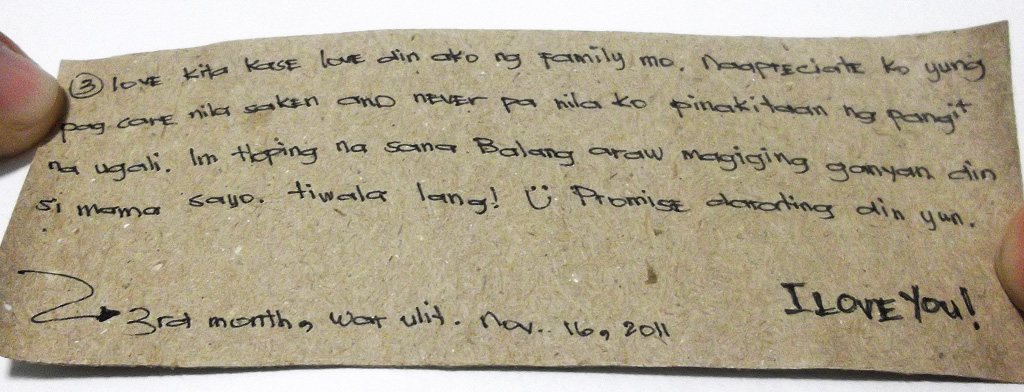 ③ love kita kase love din ako ng family mo. Naapreciate ko yung
pag care nila saken and never pa nila ko pinakitaan ng pangit
na ugali. Im Hoping na sana Balang araw magiging ganyan din
si mama sayo. tiwala lang! Ü Promise darating din yun.
3rd month, war ulit. Nov. 16, 2011
I LOVE YOU!